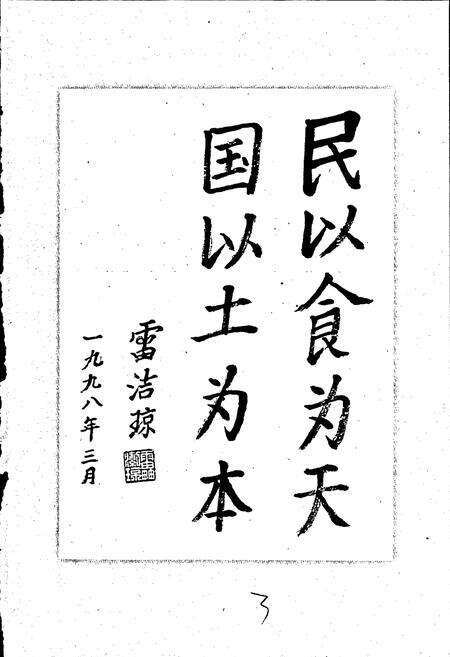 民以食为天
国以土为本
雷洁琼
一九九八年三月
3